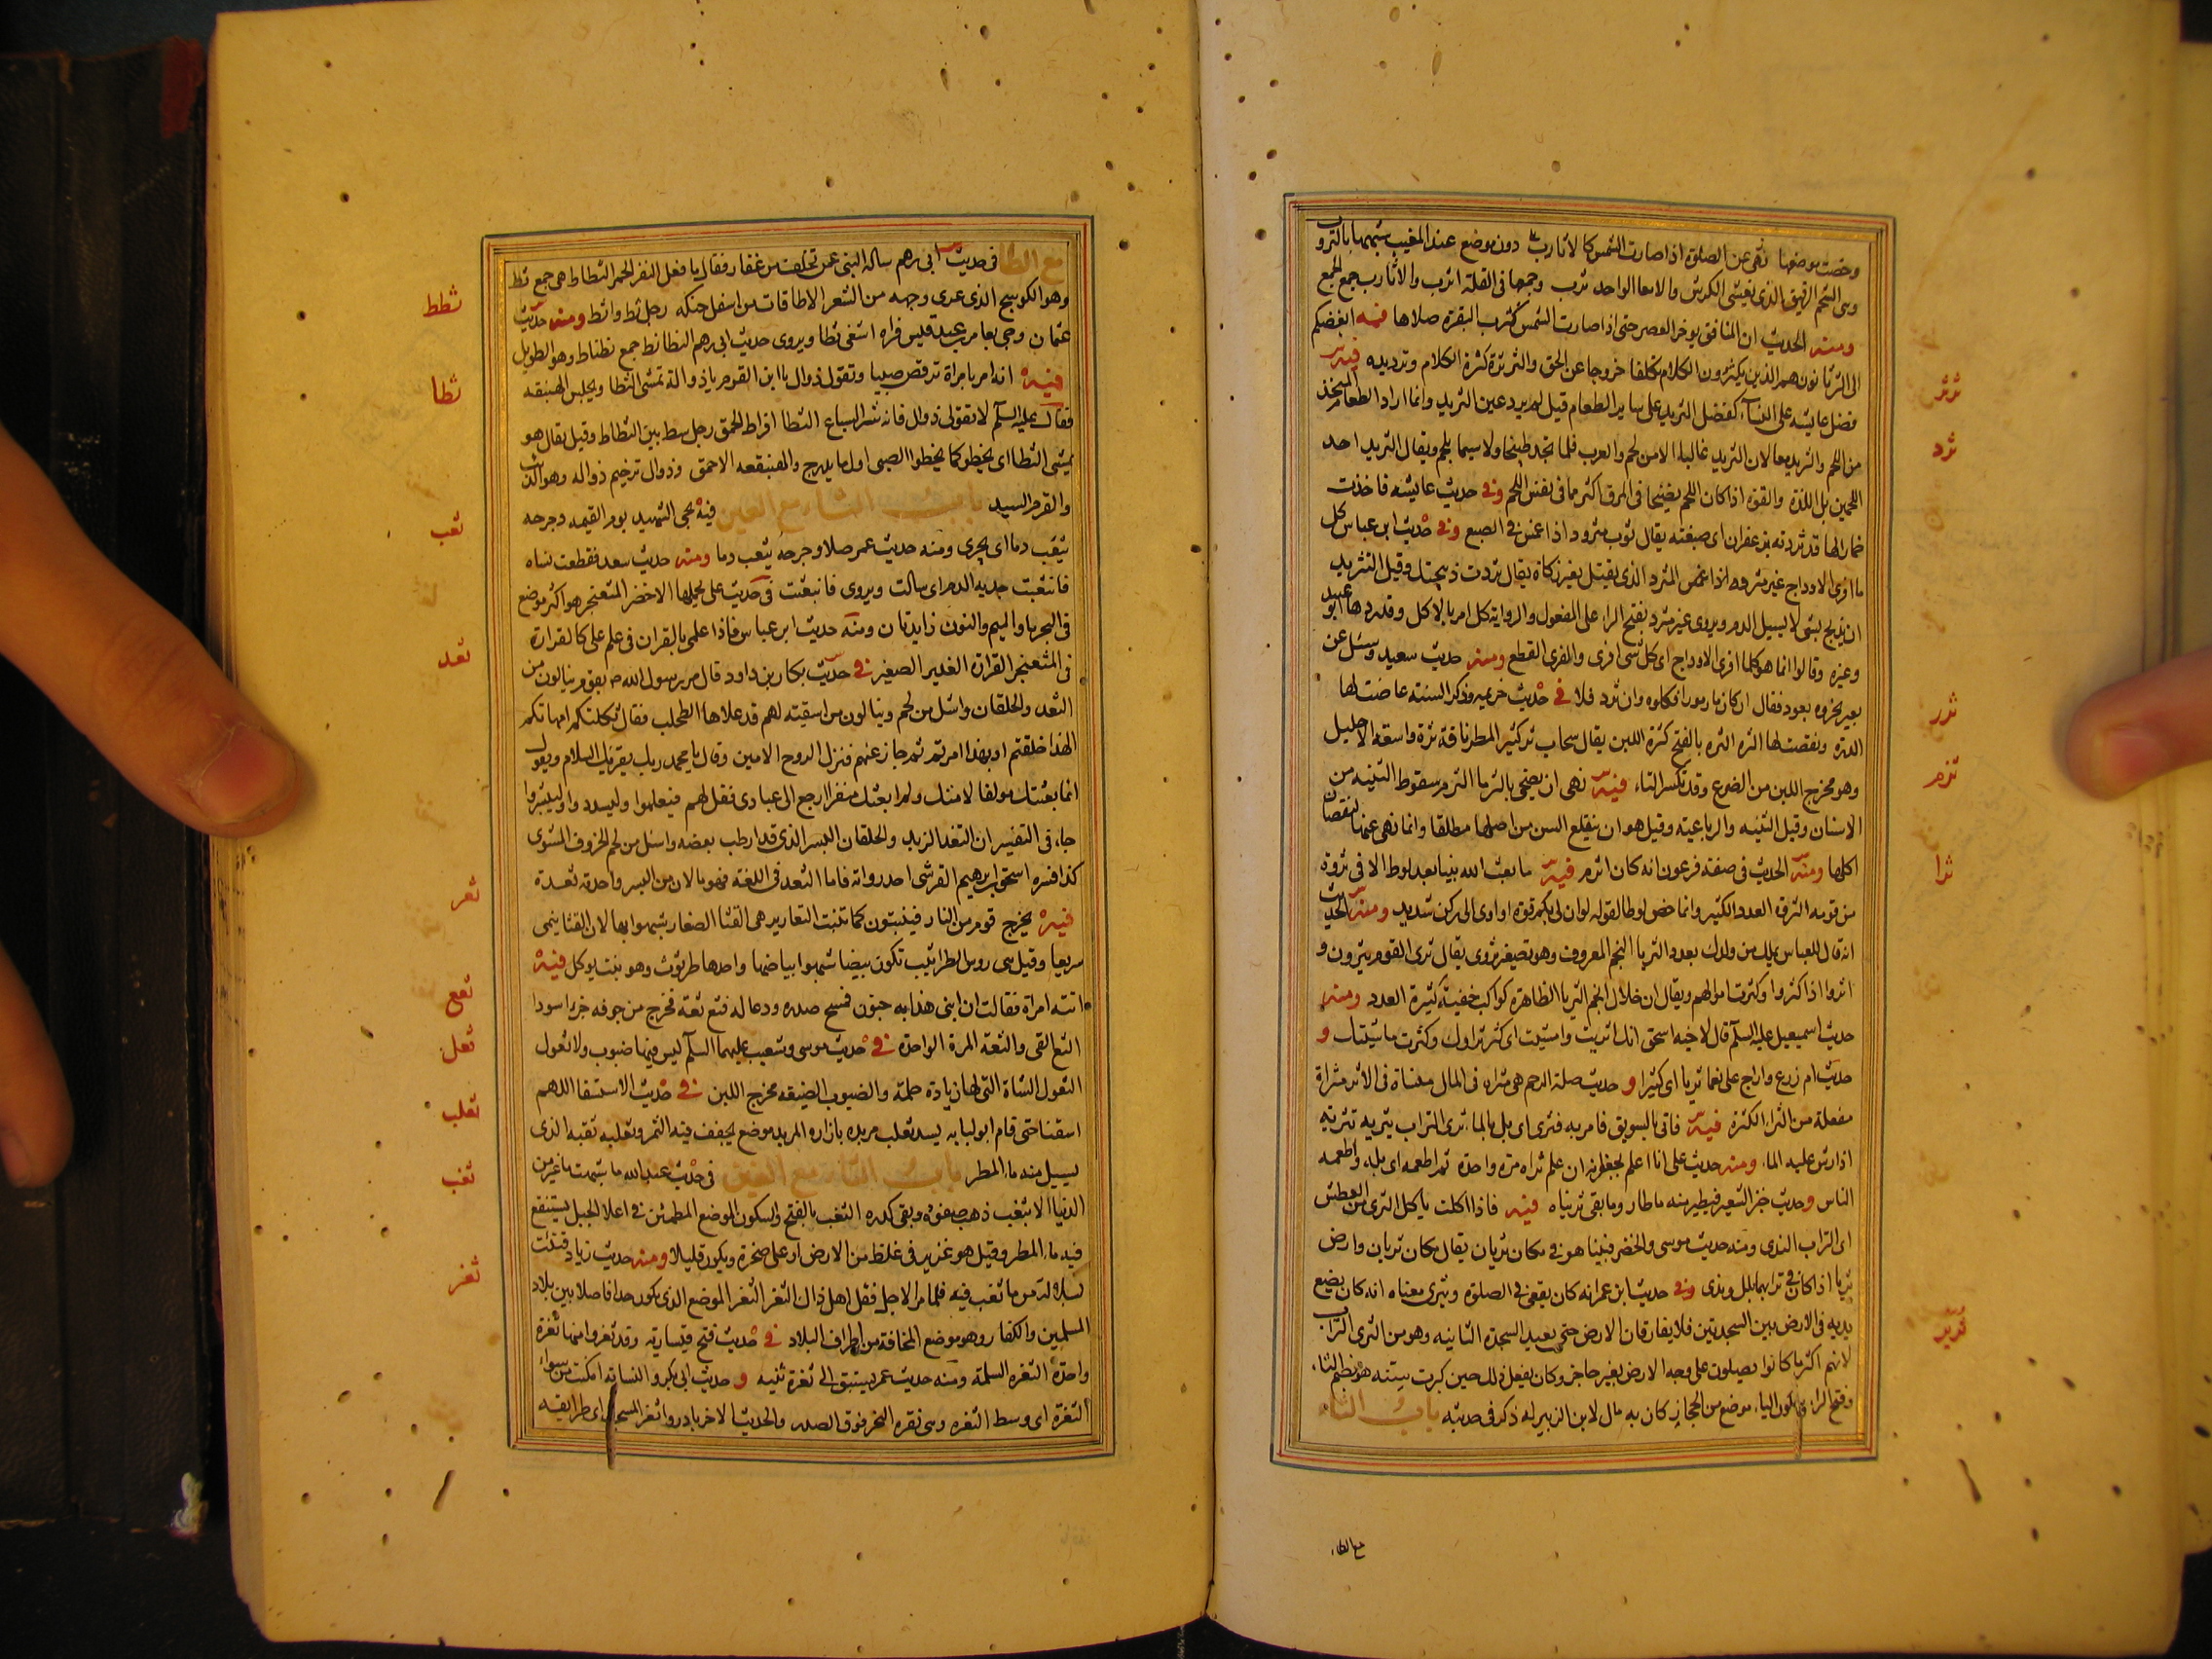 وخصت موضعها نهى عن الصلوة اذا صارت الشمس كالاثارب دون موضع عند المغيب شبهها بالثروب
وهى الشحم الرقيق الذى يغشى الكرش والامعا الواحد ثرب وجمعها فى القلة اثرب والاثارب جمع الجمع
ومنه الحديث ان المنافق يوخر العصر حتى اذا صارت الشمس كثرب البقرة صلاها فيه ابغضكم
الى الثرثارون هم الذين يكثرون الكلام تكلفا خروجا عن الحق والثرثرة كثرة الكلام وترديده فيه
فضل عايشه على النساء كفضل الثريد على ساير الطعام قيل لم يرد عين الثريد وانما اراد الطعام المتخذ
من اللحم والثريد معا لان الثريد غالبا لا من لحم والعرب قلما تجد طبيخا ولا سيما بلحم ويقال الثريد احد
اللحمين بل اللذة والقوة اذا كان اللحم نضيجا فى المرق اكثر مما فى نفس اللحم وفى حديث عايشه فاخذت
خمارا لها قد ثردته بزعفران اى صبغته يقال ثوب مثرود اذا غمس فى الصبغ وفى حديث ابن عباس كل
ما افرى الاوداج غير مثرد المثرد الذى يقتل بغير زكاة يقال ثردت ذبيحتك وقيل التثريد
ان يذبح بشى لا يسيل الدم ويروى غير مثرد بفتح الراء على المفعول والرواية كل امر بالاكل وقد ردها ابو عبيد
وغيره وقالوا انما هو كلما افرى الاوداج اى كل شى افرى والفرى القطع ومنه حديث سعيد وسئل عن
بعير نحروه بعود فقال ان كان مار مورا فكلوه وان ثرد فلا فى حديث خزيمه وذكر السنة غاضت لها
الدره ونقصت لها الثره الثره بالفتح كثرة اللبن يقال سحاب ثر كثير المطر ناقة ثرة واسعة الاحليل
وهو مخرج اللبن من الضرع وقد تكسر الثاء فيه نهى ان يضحى بالثرما الثرم سقوط الثنيه من
الاسنان وقيل الثنيه والرباعيه وقيل هو ان ينقلع السن من اصلها مطلقا وانما نهى عنها لنقصان
اكلها ومنه الحديث فى صفة فرعون انه كان اثرم فيه ما بعث الله نبيا بعد لوط الا فى ثروة
من قومه الثروة العدد الكثير وانما خص لوطا لقوله لو ان لى بكم قوة او اوى الى ركن شديد ومنه الحديث
انه قال للعباس يملك من ولدك بعدد الثريا النجم المعروف وهو تصغير ثروى يقال ثرى القوم يثرون و
اثروا اذا كثروا وكثرت اموالهم ويقال ان خلال انجم الثريا الظاهرة كواكب خفية كثيرة العدد ومنه
حديث اسمعيل عليه السلم قال لاخيه اسحق انك اثريت وامشيت اى كثر ثراوك وكثرت ماشيتك و
حديث ام زرع واراح على نعما ثريا اى كثيرا و حديث صلة الرحم هى مثراة فى المال منساة فى الاثر مثراة
مفعلة من الثراء الكثرة فيه فاتى بالسويق فامر به فثرى اى بل بالماء ثرى التراب يثريه تثرية
اذا رش عليه الماء ومنه حديث على انا اعلم بجعفر انه ان علم ثراه مرة واحدة ثم اطعمه اى بله واطعمه
الناس وحديث خبز الشعير فيطير منه ما طار وما بقى ثريناه فيه فاذا كلب ياكل الثرى من العطش
اى التراب الندى ومنه حديث موسى والخضر فبينا هو فى مكان ثريان يقال مكان ثريان وارض
ثريا اذا كان فى ترابهما بلل وندى وفى حديث ابن عمر انه كان يقعى فى الصلوة ويثرى معناه انه كان يضع
يديه فى الارض بين السجدتين فلا يفارقان الارض حتى يعيد السجدة الثانيه وهو من الثرى التراب
لانهم اكثر ما كانوا يصلون على وجه الارض بغير حاجز وكان يفعل ذلك حين كبرت سنه هو بضم الثاء
وفتح الراء وسكون الياء موضع من الحجاز كان به مال لابن الزبير له ذكر فى حديثه باب الثاء
ثرثر
ثرد
ثرر
ثرم
ثرا
ثرير
مع الطاء
مع الطا فى حديث ابى رهم ساله النبى عمن تخلف من غفار فقال ما فعل النفر الحمر الثطاط هى جمع ثط
وهو الكوسج الذى عرى وجهه من الشعر الا طاقات من اسفل حنكه رجل ثط واثط ومنه حديث
عثمان وجى بعامر بن عبد قيس فراه اشغى ثطا ويروى حديث ابى رهم النطانط جمع نطناط وهو الطويل
فيه انه مر بامراة ترقص صبيا وتقول ذوال يا ابن القوم يا ذواله تمشى الثطا ويجلس الهبنقعه
فقال عليه السلم لا تقولى ذوال فانه شر السباع الثطا افراط الحمق رجل ثط بين الثطاط وقيل يقال هو
يمشى الثطا اى يخطو كما يخطوا الصبى اول ما يدرج والهبنقعه الاحمق وذوال ترخيم ذواله وهو الذئب
والقرم السيد باب الثاء مع العين فيه يجى الشهيد يوم القيمه وجرحه
يثعب دما اى يجرى ومنه حديث عمر صلا وجرحه يثعب دما ومنه حديث سعد فقطعت نساه
فانثعبت جديه الدم اى سالت ويروى فانبعثت فى حديث على يحملها الاخضر المثعنجر هو اكثر موضع
فى البحر ماء والميم والنون زايدتان ومنه حديث ابن عباس فاذا علمى بالقران فى علم على كالقرارة
فى المثعنجر القرارة الغدير الصغير فى حديث بكار بن داود قال مر رسول الله ص بقوم ينالون من
الثعد والحلقان واشل من لحم وينالون من اسقية لهم قد علاها الطحلب فقال ثكلتكم امهاتكم
الهذا خلقتم او بهذا امرتم ثم جاز عنهم فنزل الروح الامين وقال يا محمد ربك يقريك السلام ويقول
انما بعثتك مولفا لامتك ولم ابعثك منفرا ارجع الى عبادى فقل لهم فليعلموا وليسددوا وليبشروا
جاء فى التفسير ان الثعد الزبد والحلقان البسر الذى قد ارطب بعضه واشل من لحم الخروف المشوى
كذا فسره اسحق بن ابرهيم القرشى احد رواته فاما الثعد فى اللغة فهو ما لان من البسر واحدته ثعدة
فيه يخرج قوم من النار فينبتون كما تنبت الثعارير هى القثا الصغار شبهوا بها لان القثا ينمى
سريعا وقيل هى روس الطراثيث تكون بيضا شبهوا ببياضها واحدها طرثوث وهو نبت يوكل فيه
اتته امراة فقالت ان ابنى هذا به جنون فمسح صدره ودعا له فثع ثعة فخرج من جوفه جرو اسود
الثع القى والثعة المرة الواحدة فى حديث موسى وشعيب عليهما السلم ليس فيها ضبوب ولا ثعول
الثعول الشاة التى لها زيادة حلمة والضبوب الضيقه مخرج اللبن فى حديث الاستسقا اللهم
اسقنا حتى قام ابو لبابه يسد ثعلب مربده بازاره المربد موضع يجفف فيه التمر وثعلبه ثقبه الذى
يسيل منه ماء المطر باب الثاء مع الغين فى حديث عبد الله ما شبهت ما غبر من
الدنيا الا بثغب ذهب صفوه وبقى كدره الثغب بالفتح والسكون الموضع المطمئن فى اعلا الجبل يستنقع
فيه ماء المطر وقيل هو غدير فى غلظ من الارض او على صخرة ويكون قليلا ومنه حديث زياد فثئت
بسلالة من ماء ثغب فيه فلما مر الاجل قفل اهل ذلك الثغر الثغر الموضع الذى يكون حدا فاصلا بين بلاد
المسلمين والكفار وهو موضع المخافة من اطراف البلاد فى حديث فتح قيساريه وقد ثغروا منها ثغرة
واحدة الثغره الثلمة ومنه حديث عمر يستبق الى ثغرة ثنيه و حديث ابى بكر والنسابه امكنت من سواء
الثغرة اى وسط الثغره وهى نقره النحر فوق الصدر والحديث الاخر بادروا ثغر المسجد اى طرايقه
ثطط
ثطا
ثعب
ثعد
ثعر
ثعع
ثعل
ثعلب
ثغب
ثغر